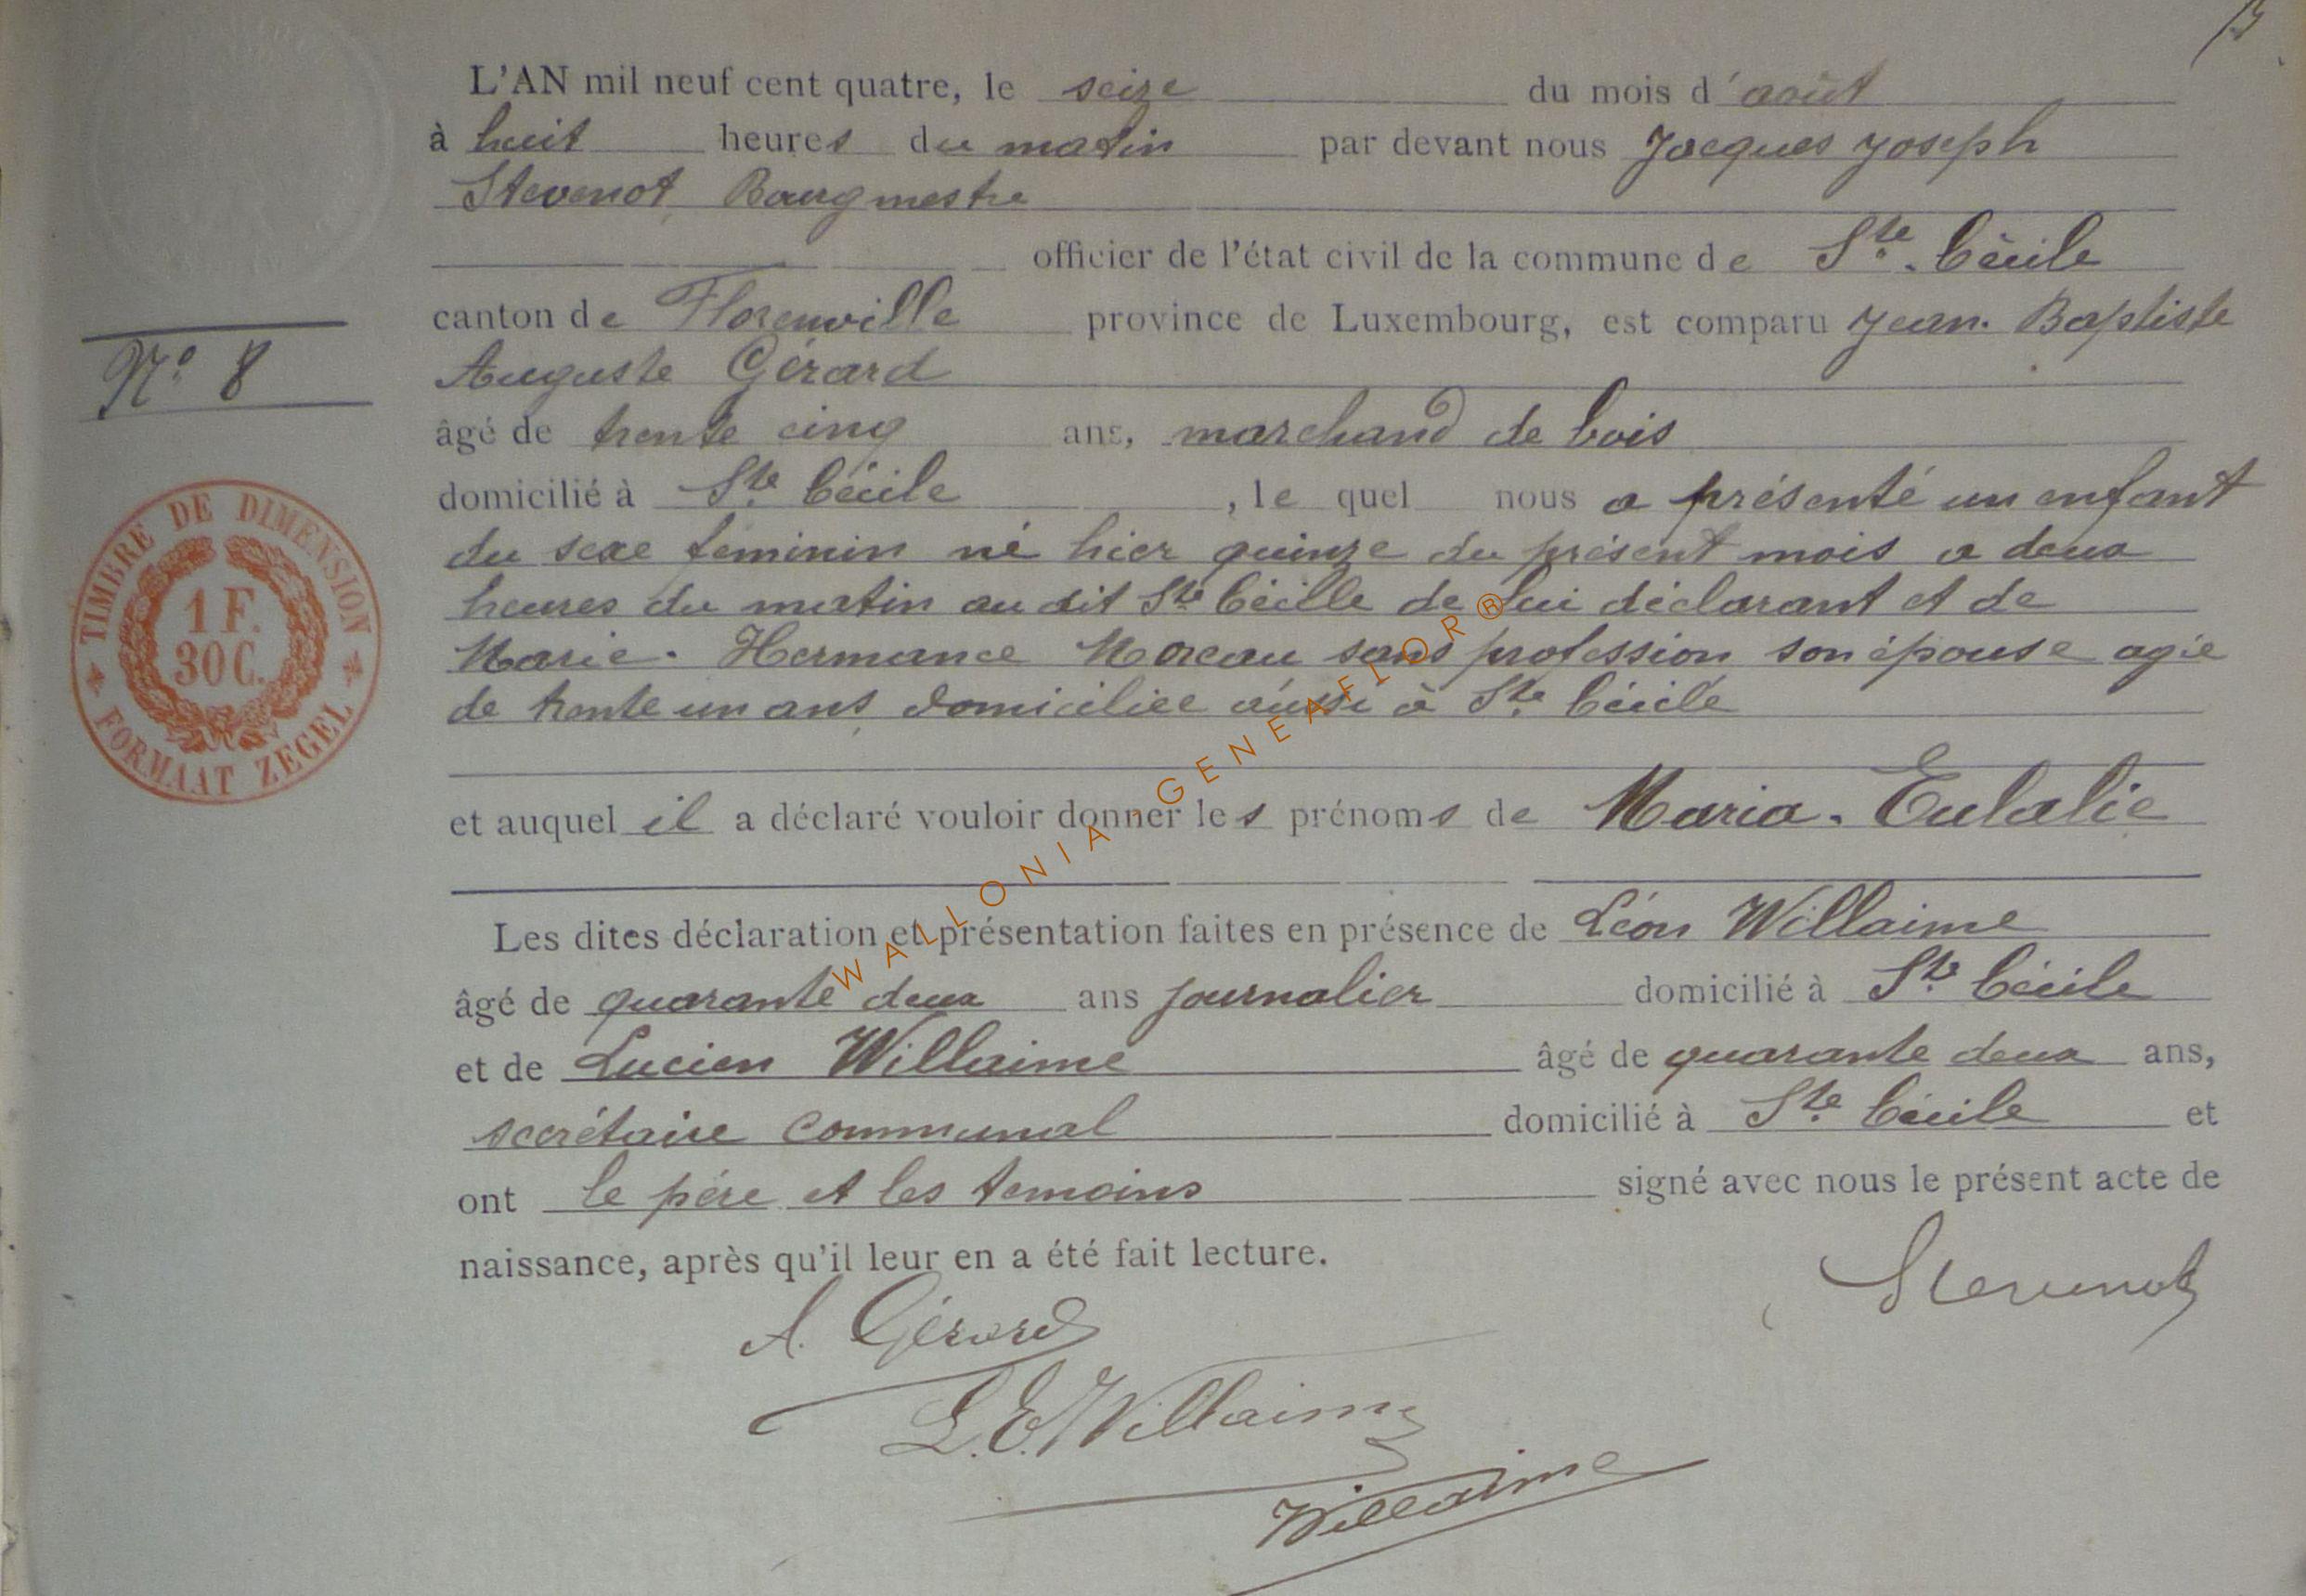 L'AN mil neuf cent quatre, le seize du mois d'août
à huit heures du matin par devant nous Jacques Joseph
Stevenot Bourgmestre
officier de l'état civil de la commune de Ste. Cécile
canton de Florenville province de Luxembourg, est comparu Jean-Baptiste
Auguste Gérard
N° 8
âgé de trente cinq ans, marchand de bois
domicilié à Ste Cécile, lequel nous a présenté un enfant
du sexe féminin né hier quinze du présent mois a deux
heures du matin au dit Ste Cécille de lui déclarant et de
Marie-Hermance Moreau sans profession son épouse agée
de trente un ans domiciliée aussi à Ste Cécile
TIMBRE DE DIMENSION
1 F.
30 C.
FORMAAT ZEGEL
et auquel il a déclaré vouloir donner les prénoms de Maria-Eulalie
Les dites déclaration et présentation faites en présence de Léon Willaime
âgé de quarante deux ans journalier domicilié à Ste Cécile
et de Lucien Willaime âgé de quarante deux ans,
secrétaire communal domicilié à Ste Cécile et
ont le père et les temoins signé avec nous le présent acte de
naissance, après qu'il leur en a été fait lecture.
Stevenot
A. Gérard
L.E. Willaime
Willaime
WALLONIA - GENEAFLOR®